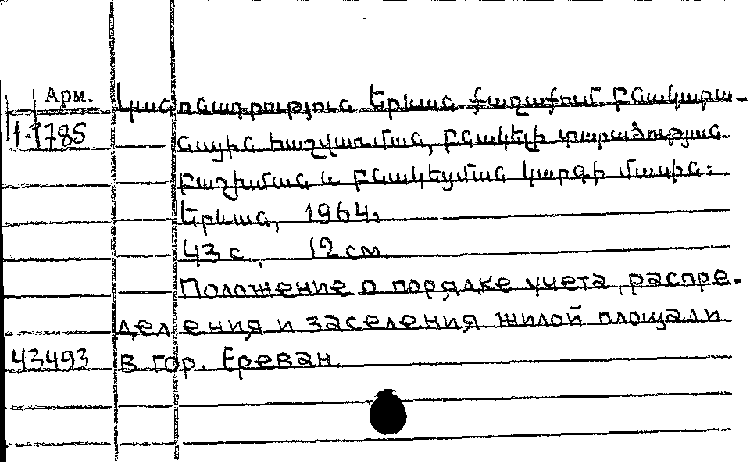 Арм. Կանոնադրություն Երևան քաղաքում բնակարա-
1-1785 նային հաշվառման, բնակելի տարածության
բաշխման և բնակեցման կարգի մասին:
Երևան, 1964:
43 с. 12 см
Положение о порядке учета, распре-
деления и заселения жилой площади
43493 в гор. Ереван.